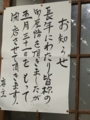 お知らせ
長年にわたり皆様の
御愛顧を頂きましたが
五月三十一日をもって
閉店させて頂きます
店主